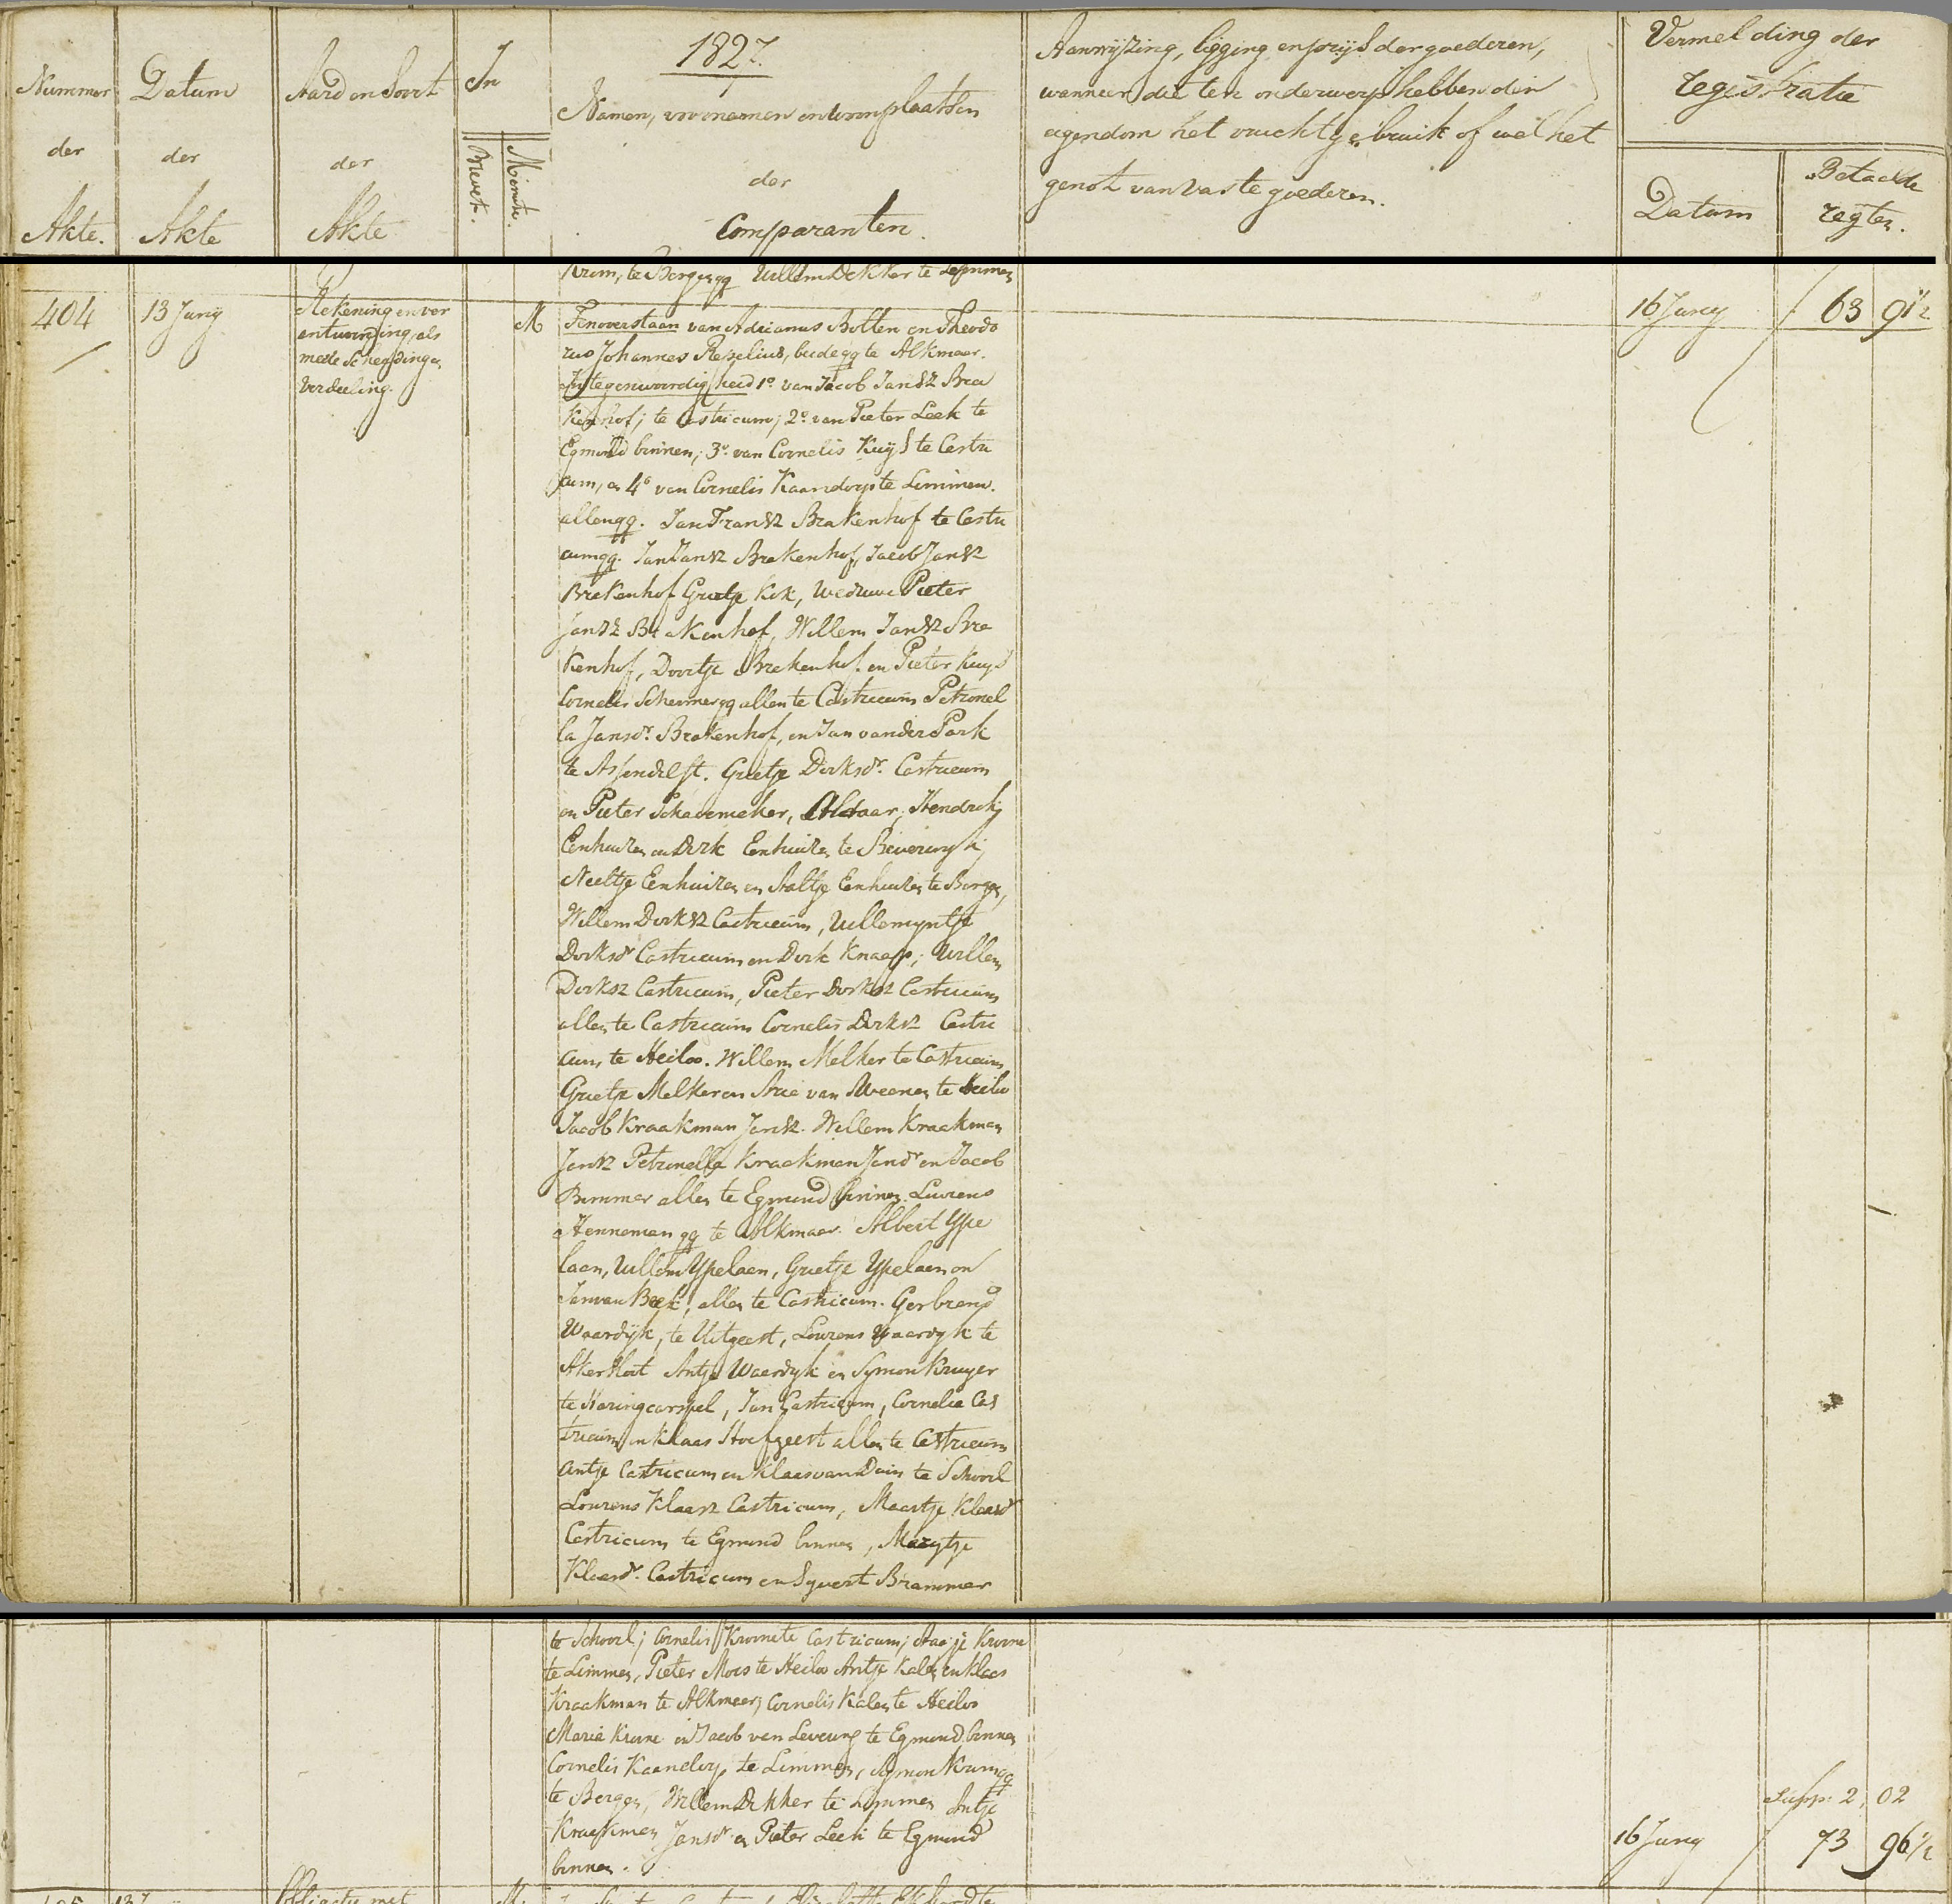 Nummer
der
Akte.
Datum
der
Akte
Aard en Soort
der
Akte
In
Brevet.
Minute.
1827.
Namen, voornamen en woonplaatsen
der
Comparanten.
Aanwijzing, ligging en prijs der goederen,
wanneer die ten onderwerp hebben den
eigendom het vruchtgebruik of wel het
genot van vaste goederen.
Vermelding der
registratie
Datum
Betaalde
regten.
Krim, te Bergen qq Willem Dekker te Lemmen
404
13 Juny
Rekening en ver
antwoording, als
mede Scheyding en
Verdeeling.
M
Tenoverstaan van Adrianus Bolten en Theodo
rus Johannes Reselius, beide qq te Alkmaar.
In tegenwoordigheid 1o van Jacob Jansz Bra
kenhof, te Castricum; 2o van Pieter Leek te
Egmond binnen; 3o van Cornelis Kuys te Castri
cum, en 4o van Cornelis Kaandorp te Limmen.
allen qq. Jan Fransz Brakenhof te Castri
cum qq. Jan Jansz Brakenhof, Jacob Jansz
Brakenhof Grietje Kok, Weduwe Pieter
Jansz Brakenhof, Willem Jansz Bra
kenhof, Doortje Brakenhof en Pieter Kuys
Cornelis Schermer qq allen te Castricum Petronel
la Jansdr. Brakenhof, en Jan van der Park
te Assendelft. Grietje Dirksdr. Castricum
en Pieter Schavemaker, Aldaar, Hendrik
Eenhuizen en Dirk Eenhuizen te Beverwyk,
Neeltje Eenhuizen en Aaltje Eenhuizen te Bergen,
Willem Dirksz Castricum, Willemyntje
Dirksdr Castricum en Dirk Knaap; Willem
Dirksz Castricum, Pieter Dirksz Castricum
allen te Castricum Cornelis Dirksz Castri
cum, te Heiloo. Willem Melker te Castricum
Grietje Melker en Arie van Weenen te Heilo
Jacob Kraakman Jansz. Willem Kraakman
Jansz Petronella Kraakman Jansdr en Jacob
Bommer allen te Egmond binnen. Lourens
Henneman qq te Alkmaar. Albert Ype
laan, Willem Ypelaan, Grietje Ypelaan en
Jan van Beek, allen te Castricum. Gerbrend
Waardyk, te Uitgeest, Lourens Waardyk te
Akersloot Antje Waardyk en Symon Kruyer
te Haringcarspel, Jan Castricum, Cornelia Cas
tricum en Klaas Stoefgeest allen te Castricum
Antje Castricum en Klaas van Duin te Schoorl
Lourens Klaasz Castricum, Maartje Klaasdr
Castricum te Egmond binnen, Marytje
Klaasdr. Castricum en Syvert Brammer
16 Juny
63 91½
te Schoorl; Cornelis Kroone te Castricum; Aagje Kroone
te Limmen, Pieter Moes te Heiloo Antje Kalen en Klaas
Kraakman te Alkmaar; Cornelis Kalen te Heiloo
Maria Kroone en Jacob van Leveung te Egmond binnen
Cornelis Kaandorp te Limmen, Symon Krim qq
te Bergen, Willem Dekker te Limmen Antje
Kraakman Jansdr en Pieter Leek te Egmond
binnen.
Supp: 2, 02
16 Juny
73 96½
405
13
Obligatie met
M.